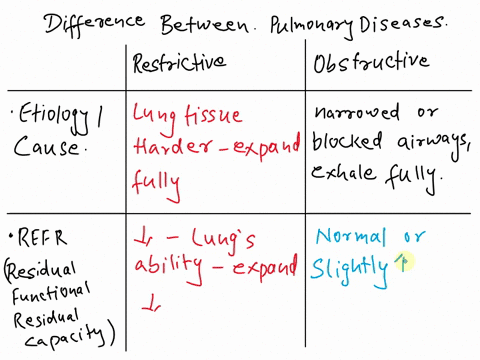 Difference Between. Pulmonary Diseases.
Restrictive
Obstructive
• Etiology /
Cause.
Lung tissue
Harder - expand
fully
narrowed or
blocked airways,
exhale fully.
• REFR
(Residual
Functional
Residual
Capacity)
↓ - Lung's
ability - expand
↓
Normal or
Slightly ↑